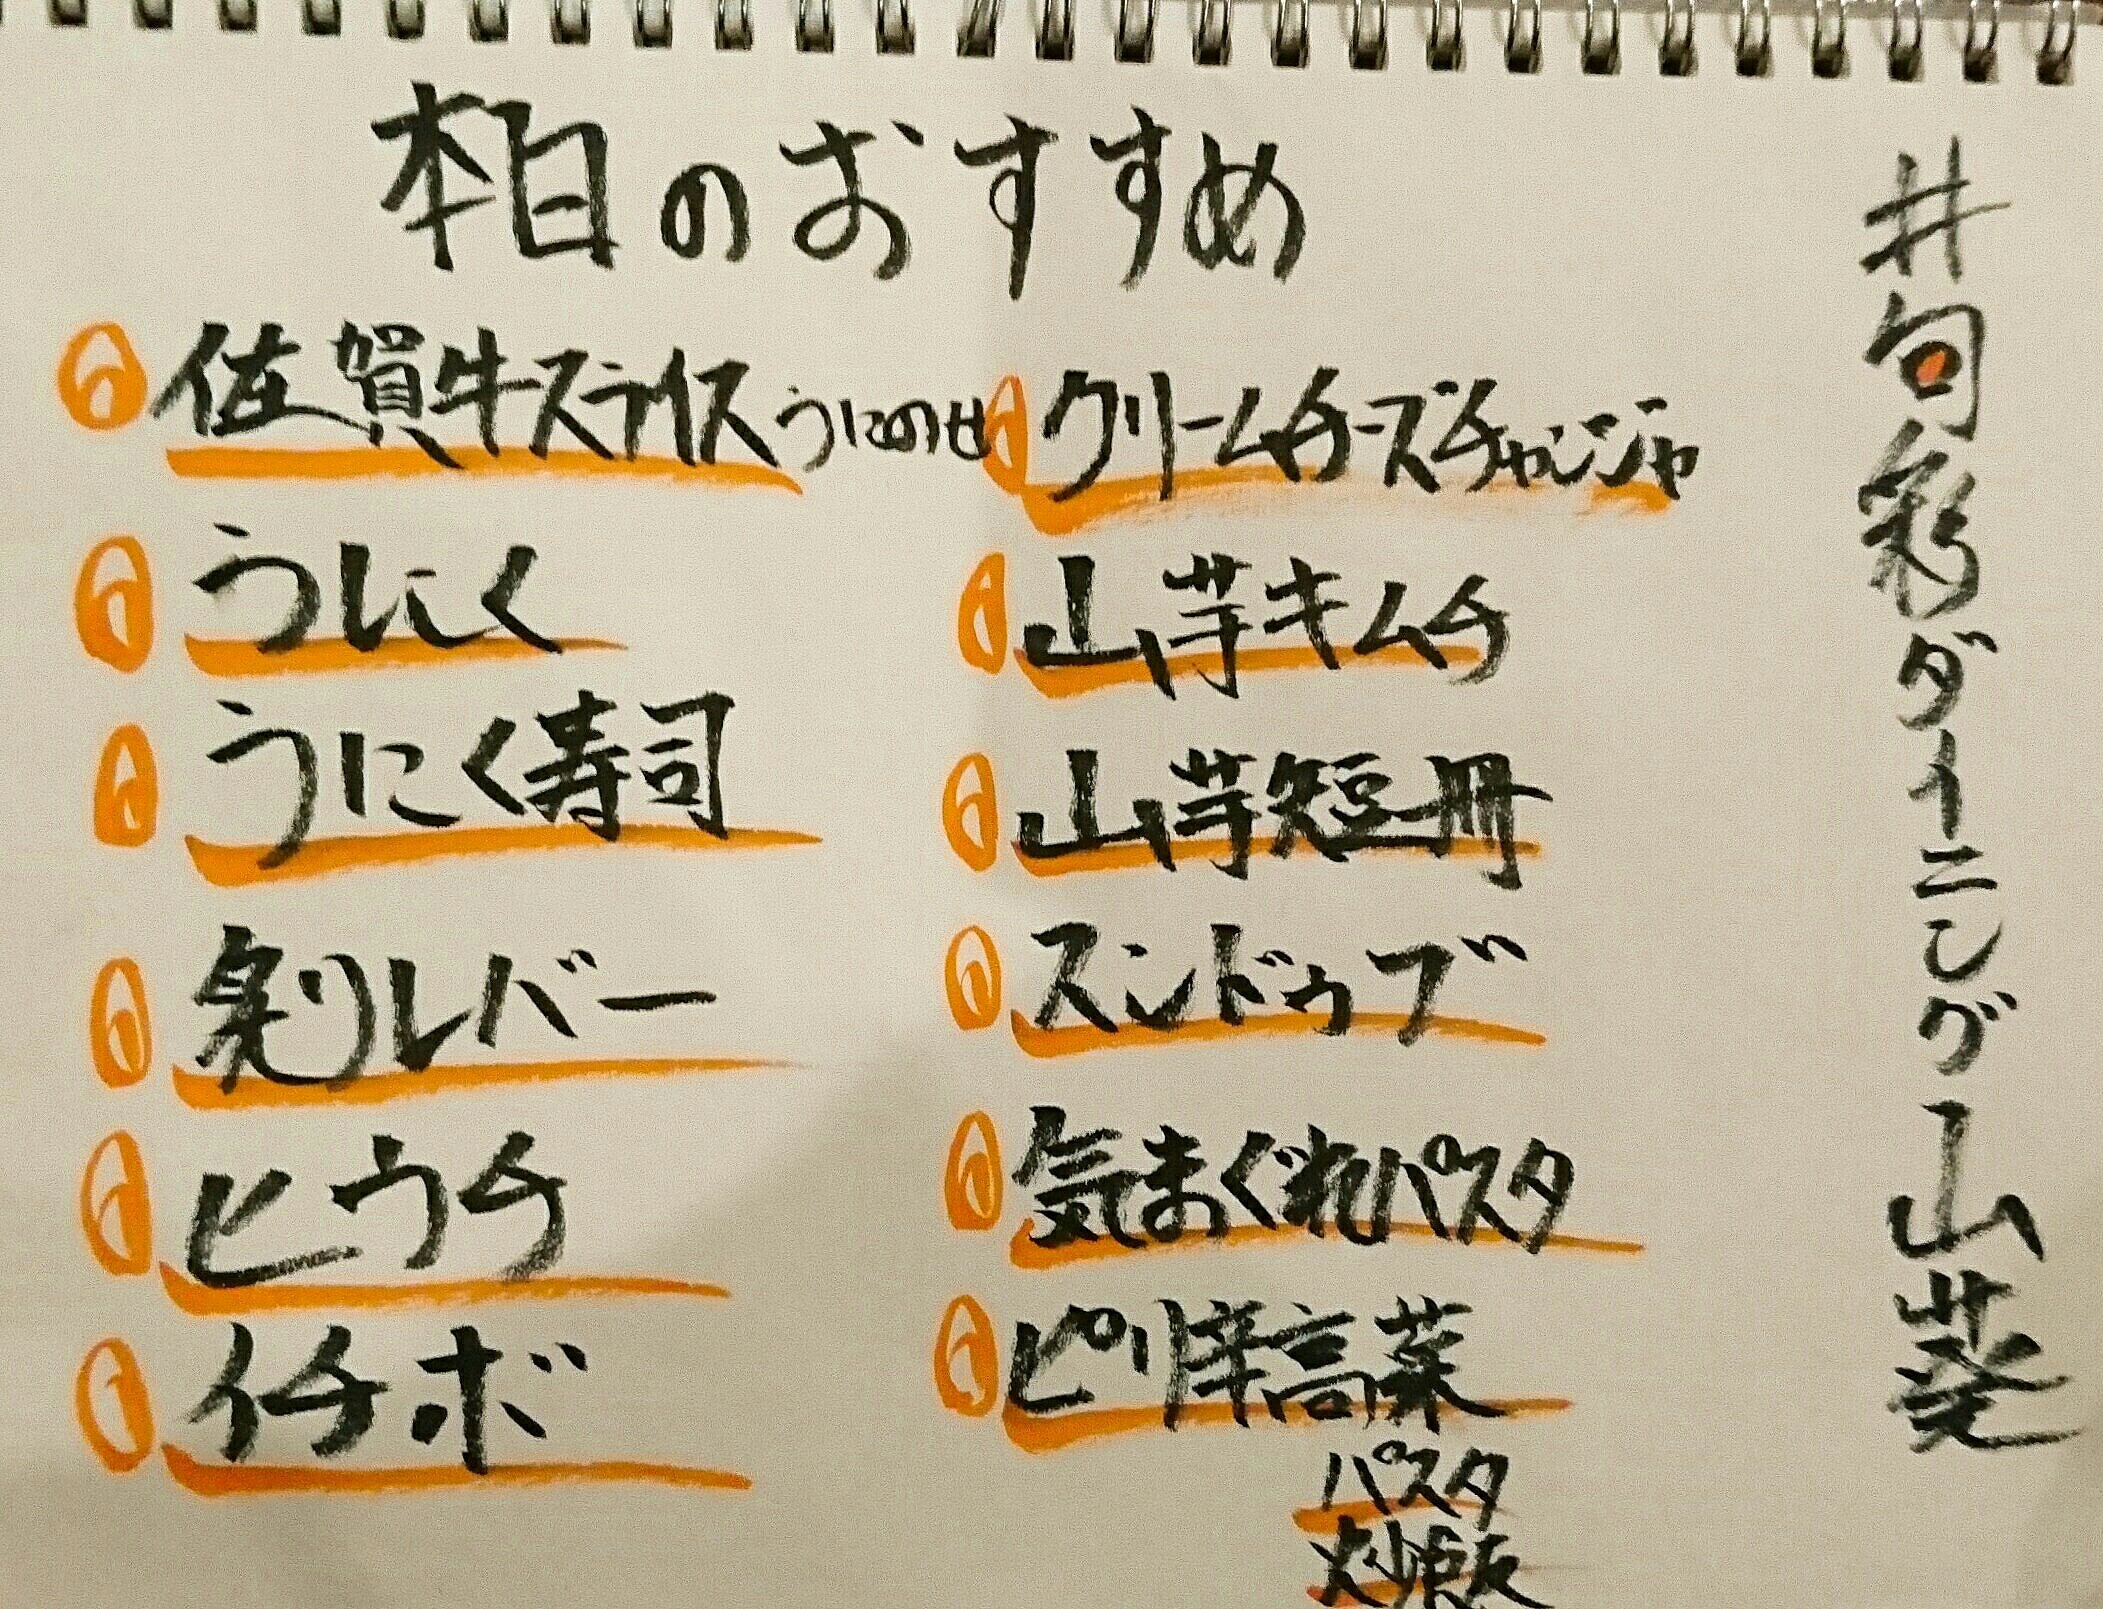 本日のおすすめ
佐賀牛スライスうにのせ
うにく
うにく寿司
炙りレバー
ヒウチ
イチボ
クリームチーズチャンジャ
山芋キムチ
山芋短冊
スンドゥブ
気まぐれパスタ
ピリ辛高菜
パスタ
炒飯
#旬彩ダイニング 山葵